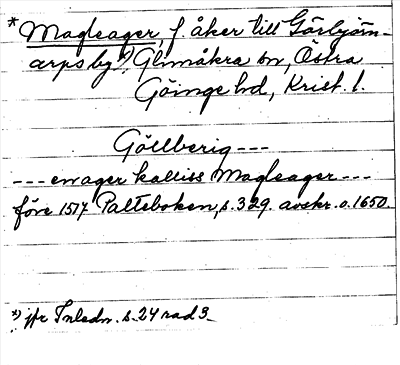 * Magleager, f. åker till Görbjörn-
arps by?*) Glimåkra sn, Östra
Göinge hd, Krist. l.
Göllberig ---
--- en ager kalliss Magleager ---
före 1517 Palteboken, s. 329. avskr. o. 1650.
*) jfr Inledn. s. 24 rad 3